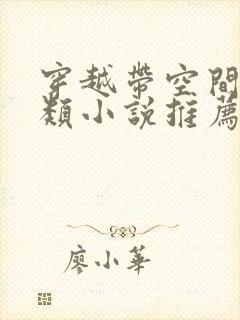 穿越帶空間
類小說推薦
廖小華